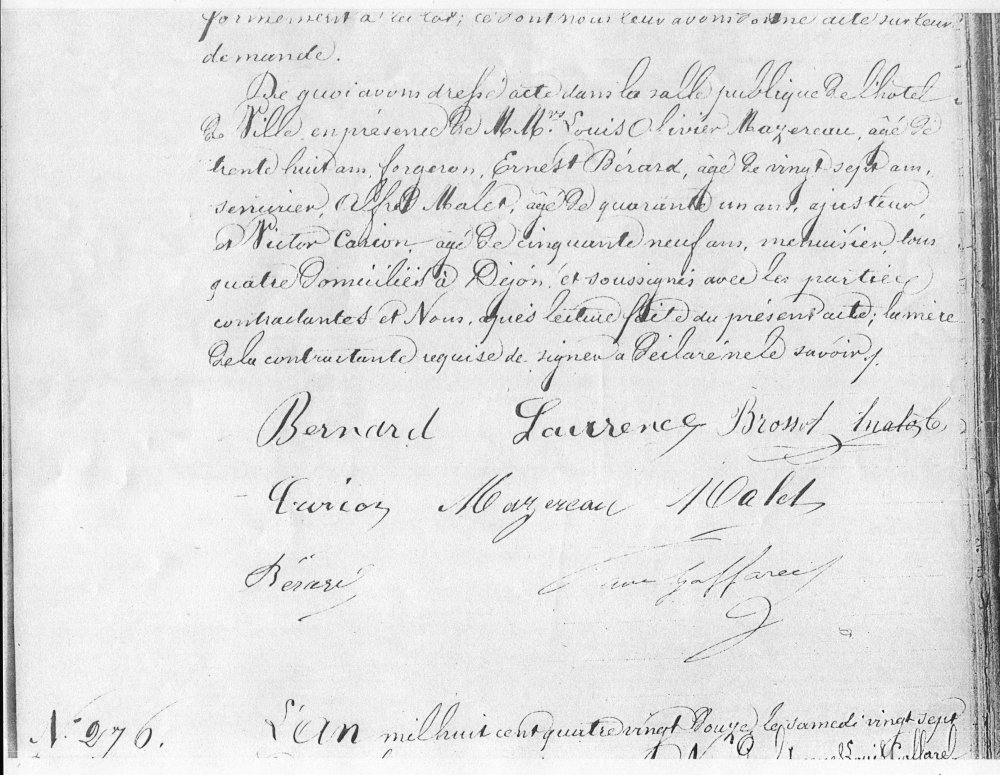 formément à la loi; ce dont nous leur avons donné acte sur leur
demande.
De quoi avons dressé acte dans la salle publique de l'hôtel
de Ville, en présence de MM.rs Louis Olivier Mazereau, âgé de
trente huit ans, forgeron, Ernest Bérard, âgé de vingt sept ans,
serrurier, Alfred Malet, âgé de quarante un ans, ajusteur,
et Victor Carion, âgé de cinquante neuf ans, menuisier, tous
quatre domiciliés à Dijon, et soussignés avec les parties
contractantes et Nous, après lecture faite du présent acte; la mère
de la contractante requise de signer a déclaré ne le savoir.
Bernard Laurence Brossot
Carion Mazereau Malet
Bérard Gaffarel
N.° 276. L'an mil huit cent quatre vingt douze, le samedi vingt sept
Louis Gaffarel